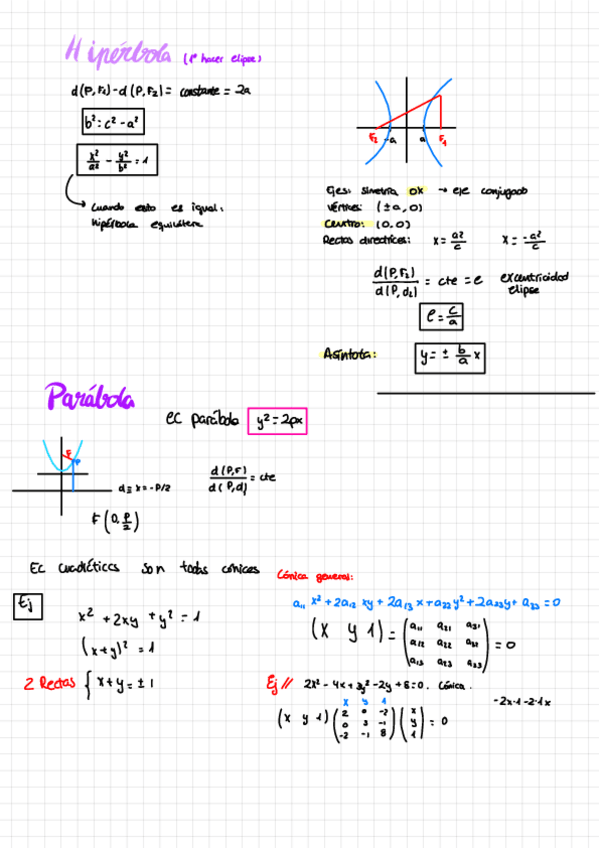 Hipérbola (1º hacer elipse)
d(P,F₁)-d(P,F₂) = constante = 2a
b² = c² - a²
x²/a² - y²/b² = 1
→ Cuando esto es igual:
hipérbola equilátera
F₂ -a a F₁
Ejes: simetría OX → eje conjugado
Vértices: (±a, 0)
Centro: (0,0)
Rectas directrices: x = a²/c x = -a²/c
d(P,F₂)/d(P,d₂) = cte = e excentricidad
elipse
e = c/a
Asíntota: y = ± b/a x
Parábola
EC parábola y² = 2px
F P
d ≡ x = -P/2
d(P,F)/d(P,d) = cte
F(0, P/2)
EC cuadráticas son todas cónicas
Cónica general:
Ej
a₁₁ x² + 2a₁₂ xy + 2a₁₃ x + a₂₂ y² + 2a₂₃ y + a₃₃ = 0
x² + 2xy + y² = 1
(x y 1) = (a₁₁ a₂₁ a₃₁
a₁₂ a₂₂ a₃₂
a₁₃ a₂₃ a₃₃) = 0
(x+y)² = 1
2 Rectas { x+y = ± 1
Ej // 2x² - 4x + 3y² - 2y + 8 = 0. Cónica.
-2x·1-2·1x
x y 1
(x y 1) (2 0 -2
0 3 -1
-2 -1 8) (x
y
1) = 0